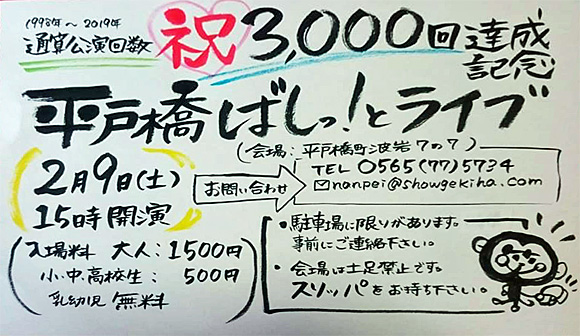 1998年～2019年
通算公演回数
祝 3,000回 達成記念
平戸橋ばしっ!とライブ
(会場:平戸橋町波岩7の7)
2月9日(土)
15時開演
お問い合わせ
TEL 0565(77)5734
✉nanpei@showgekiha.com
入場料 大人:1500円
小・中・高校生: 500円
乳幼児 無料
・駐車場に限りがあります。
事前にご連絡下さい。
・会場は土足禁止です。
スリッパをお持ち下さい。